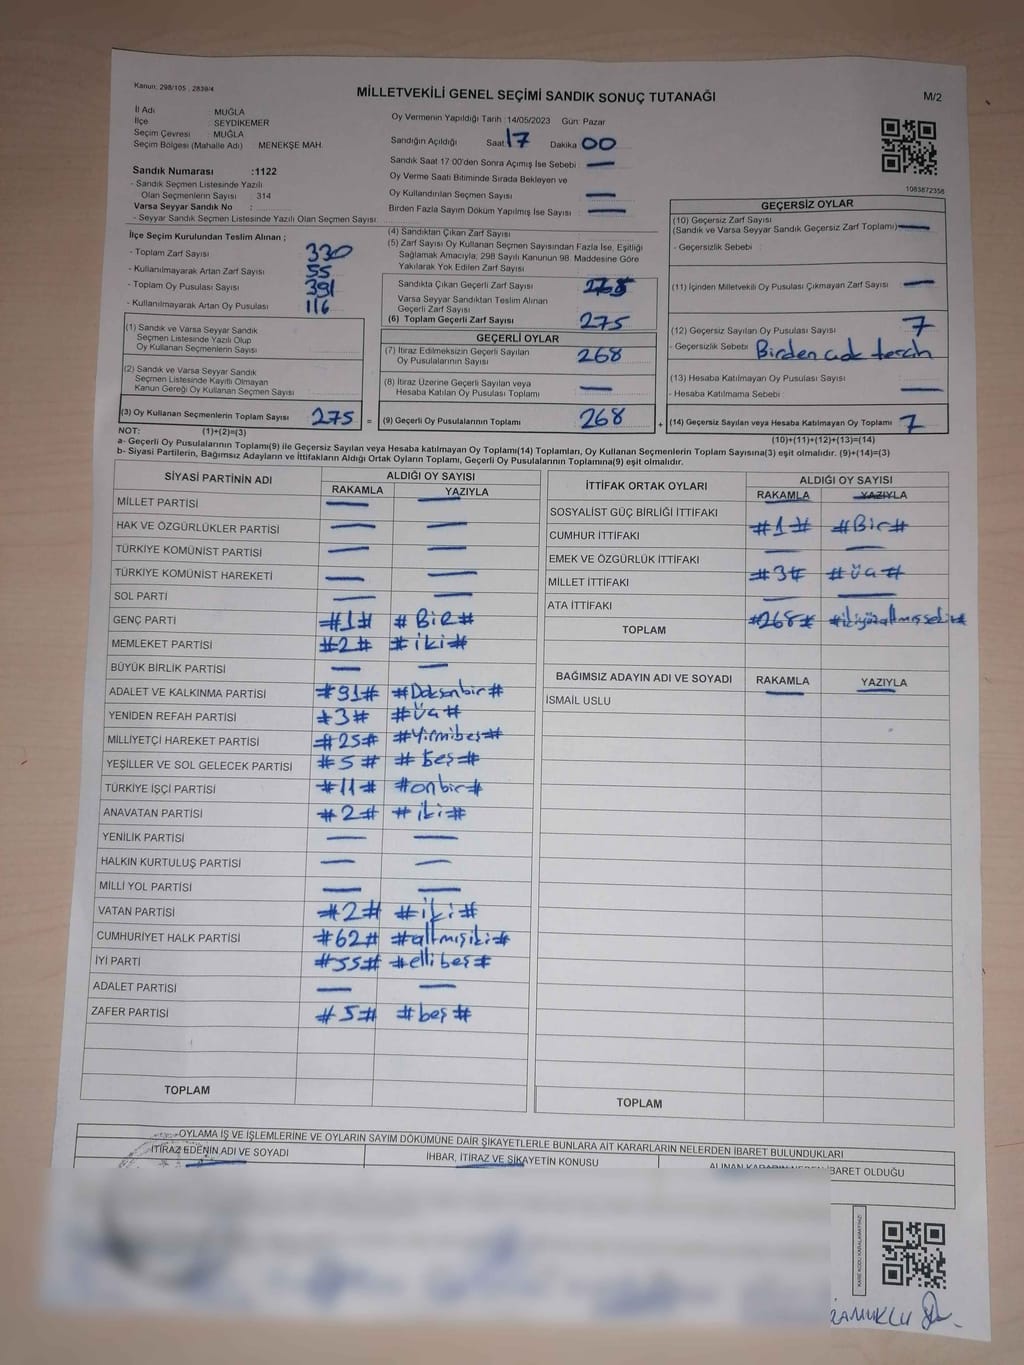 Kanun, 298/105 , 2839/4
MİLLETVEKİLİ GENEL SEÇİMİ SANDIK SONUÇ TUTANAĞI
M/2
İl Adı MUĞLA
İlçe SEYDİKEMER
Seçim Çevresi : MUĞLA
Seçim Bölgesi (Mahalle Adı) MENEKŞE MAH.
Sandık Numarası :1122
- Sandık Seçmen Listesinde Yazılı
Olan Seçmenlerin Sayısı : 314
Varsa Seyyar Sandık No :
- Seyyar Sandık Seçmen Listesinde Yazılı Olan Seçmen Sayısı:
Oy Vermenin Yapıldığı Tarih :14/05/2023 Gün: Pazar
Sandığın Açıldığı Saat 17 Dakika 00
Sandık Saat 17:00'den Sonra Açımış İse Sebebi : —
Oy Verme Saati Bitiminde Sırada Bekleyen ve
Oy Kullandırılan Seçmen Sayısı : —
Birden Fazla Sayım Döküm Yapılmış İse Sayısı : —
1083872358
İlçe Seçim Kurulundan Teslim Alınan ;
- Toplam Zarf Sayısı : 330
- Kullanılmayarak Artan Zarf Sayısı : 55
- Toplam Oy Pusulası Sayısı : 391
- Kullanılmayarak Artan Oy Pusulası : 116
(1) Sandık ve Varsa Seyyar Sandık
Seçmen Listesinde Yazılı Olup
Oy Kullanan Seçmenlerin Sayısı
(2) Sandık ve Varsa Seyyar Sandık
Seçmen Listesinde Kayıtlı Olmayan
Kanun Gereği Oy Kullanan Seçmen Sayısı :
(3) Oy Kullanan Seçmenlerin Toplam Sayısı 275 =
(4) Sandıktan Çıkan Zarf Sayısı
(5) Zarf Sayısı Oy Kullanan Seçmen Sayısından Fazla İse, Eşitliği
Sağlamak Amacıyla; 298 Sayılı Kanunun 98. Maddesine Göre
Yakılarak Yok Edilen Zarf Sayısı :
Sandıkta Çıkan Geçerli Zarf Sayısı :
Varsa Seyyar Sandıktan Teslim Alınan
Geçerli Zarf Sayısı :
(6) Toplam Geçerli Zarf Sayısı 275
GEÇERLİ OYLAR
(7) İtiraz Edilmeksizin Geçerli Sayılan
Oy Pusulalarının Sayısı : 268
(8) İtiraz Üzerine Geçerli Sayılan veya
Hesaba Katılan Oy Pusulası Toplamı : —
(9) Geçerli Oy Pusulalarının Toplamı : 268 +
GEÇERSİZ OYLAR
(10) Geçersiz Zarf Sayısı
(Sandık ve Varsa Seyyar Sandık Geçersiz Zarf Toplamı) —
- Geçersizlik Sebebi :
(11) İçinden Milletvekili Oy Pusulası Çıkmayan Zarf Sayısı : —
(12) Geçersiz Sayılan Oy Pusulası Sayısı : 7
- Geçersizlik Sebebi : Birden çok tercih
(13) Hesaba Katılmayan Oy Pusulası Sayısı : —
- Hesaba Katılmama Sebebi :
(14) Geçersiz Sayılan veya Hesaba Katılmayan Oy Toplamı 7
NOT: (1)+(2)=(3) (10)+(11)+(12)+(13)=(14)
a- Geçerli Oy Pusulalarının Toplamı(9) ile Geçersiz Sayılan veya Hesaba katılmayan Oy Toplamı(14) Toplamları, Oy Kullanan Seçmenlerin Toplam Sayısına(3) eşit olmalıdır. (9)+(14)=(3)
b- Siyasi Partilerin, Bağımsız Adayların ve İttifakların Aldığı Ortak Oyların Toplamı, Geçerli Oy Pusulalarının Toplamına(9) eşit olmalıdır.
SİYASİ PARTİNİN ADI ALDIĞI OY SAYISI
RAKAMLA YAZIYLA
MİLLET PARTİSİ — —
HAK VE ÖZGÜRLÜKLER PARTİSİ — —
TÜRKİYE KOMÜNİST PARTİSİ — —
TÜRKİYE KOMÜNİST HAREKETİ — —
SOL PARTİ — —
GENÇ PARTİ #1# #BİR#
MEMLEKET PARTİSİ #2# #iki#
BÜYÜK BİRLİK PARTİSİ — —
ADALET VE KALKINMA PARTİSİ #91# #Doksanbir#
YENİDEN REFAH PARTİSİ #3# #Üç#
MİLLİYETÇİ HAREKET PARTİSİ #25# #Yirmibeş#
YEŞİLLER VE SOL GELECEK PARTİSİ #5# #Beş#
TÜRKİYE İŞÇİ PARTİSİ #11# #onbir#
ANAVATAN PARTİSİ #2# #iki#
YENİLİK PARTİSİ — —
HALKIN KURTULUŞ PARTİSİ — —
MİLLİ YOL PARTİSİ — —
VATAN PARTİSİ #2# #iki#
CUMHURİYET HALK PARTİSİ #62# #altmışiki#
İYİ PARTİ #55# #ellibeş#
ADALET PARTİSİ — —
ZAFER PARTİSİ #5# #beş#
TOPLAM
İTTİFAK ORTAK OYLARI ALDIĞI OY SAYISI
RAKAMLA YAZIYLA
SOSYALİST GÜÇ BİRLİĞİ İTTİFAKI — —
CUMHUR İTTİFAKI #1# #Bir#
EMEK VE ÖZGÜRLÜK İTTİFAKI — —
MİLLET İTTİFAKI #3# #üç#
ATA İTTİFAKI — —
TOPLAM #268# #ikiyüzaltmışsekiz#
BAĞIMSIZ ADAYIN ADI VE SOYADI RAKAMLA YAZIYLA
İSMAİL USLU — —
TOPLAM
OYLAMA İŞ VE İŞLEMLERİNE VE OYLARIN SAYIM DÖKÜMÜNE DAİR ŞİKAYETLERLE BUNLARA AİT KARARLARIN NELERDEN İBARET BULUNDUKLARI
İTİRAZ EDENİN ADI VE SOYADI İHBAR, İTİRAZ VE ŞİKAYETİN KONUSU ALINAN KARARIN NEDEN İBARET OLDUĞU
KARE KODU KARALAMAYINIZ!